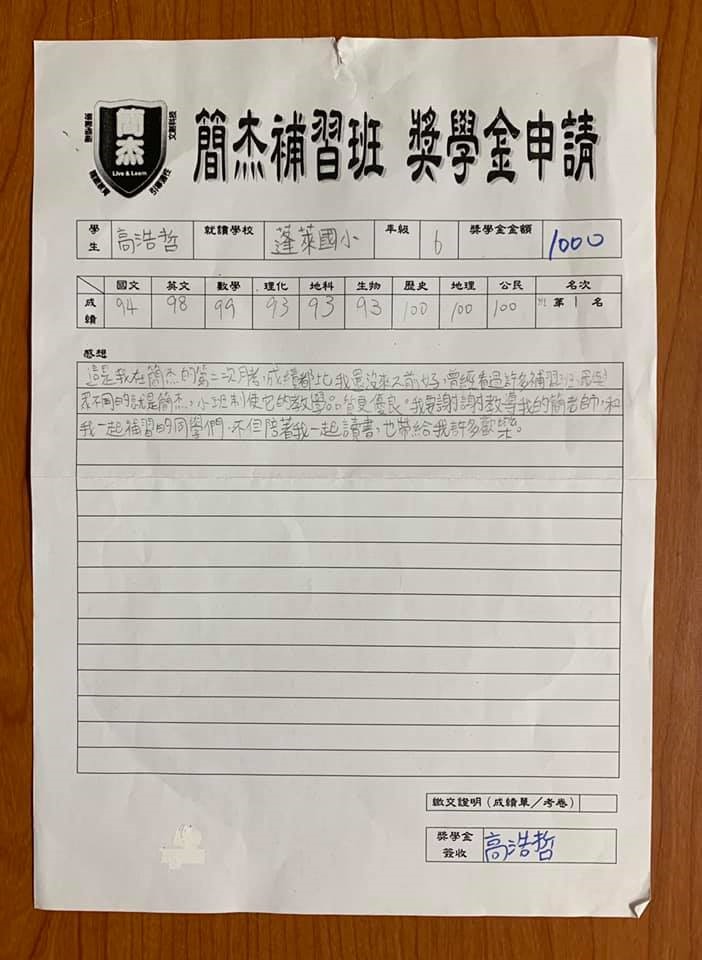 簡杰
Live & Learn
簡杰補習班 獎學金申請
學生 高浩哲 就讀學校 蓬萊國小 年級 6 獎學金金額 1000
國文 英文 數學 理化 地科 生物 歷史 地理 公民 名次
成績 94 98 99 93 93 93 100 100 100 班 第 1 名
感想
這是我在簡杰的第二次月考,成績都比我還沒來之前好,曾經看過許多補習班,最與
眾不同的就是簡杰,小班制使它的教學品質更優良。我要謝謝教導我的簡老師,和
我一起補習的同學們,不但陪著我一起讀書,也帶給我許多歡樂。
繳交證明(成績單/考卷)
獎學金簽收 高浩哲